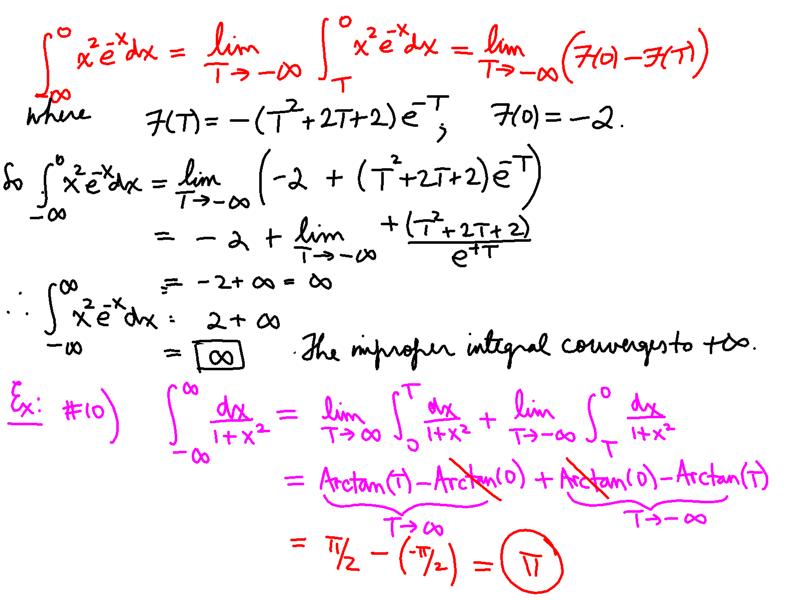 ∫_{-∞}^{0} x² e^{-x} dx = lim_{T→-∞} ∫_{T}^{0} x² e^{-x} dx = lim_{T→-∞} (F(0) - F(T))
where F(T) = -(T² + 2T + 2) e^{-T}; F(0) = -2.
So ∫_{-∞}^{0} x² e^{-x} dx = lim_{T→-∞} (-2 + (T² + 2T + 2) e^{-T})
= -2 + lim_{T→-∞} + (T² + 2T + 2) / e^{+T}
= -2 + ∞ = ∞
∴ ∫_{-∞}^{∞} x² e^{-x} dx = 2 + ∞
= ∞ . The improper integral converges to +∞.
Ex: #10) ∫_{-∞}^{∞} dx/(1+x²) = lim_{T→∞} ∫_{0}^{T} dx/(1+x²) + lim_{T→-∞} ∫_{T}^{0} dx/(1+x²)
= Arctan(T) - Arctan(0) + Arctan(0) - Arctan(T)
T→∞ T→-∞
= π/2 - (-π/2) = π